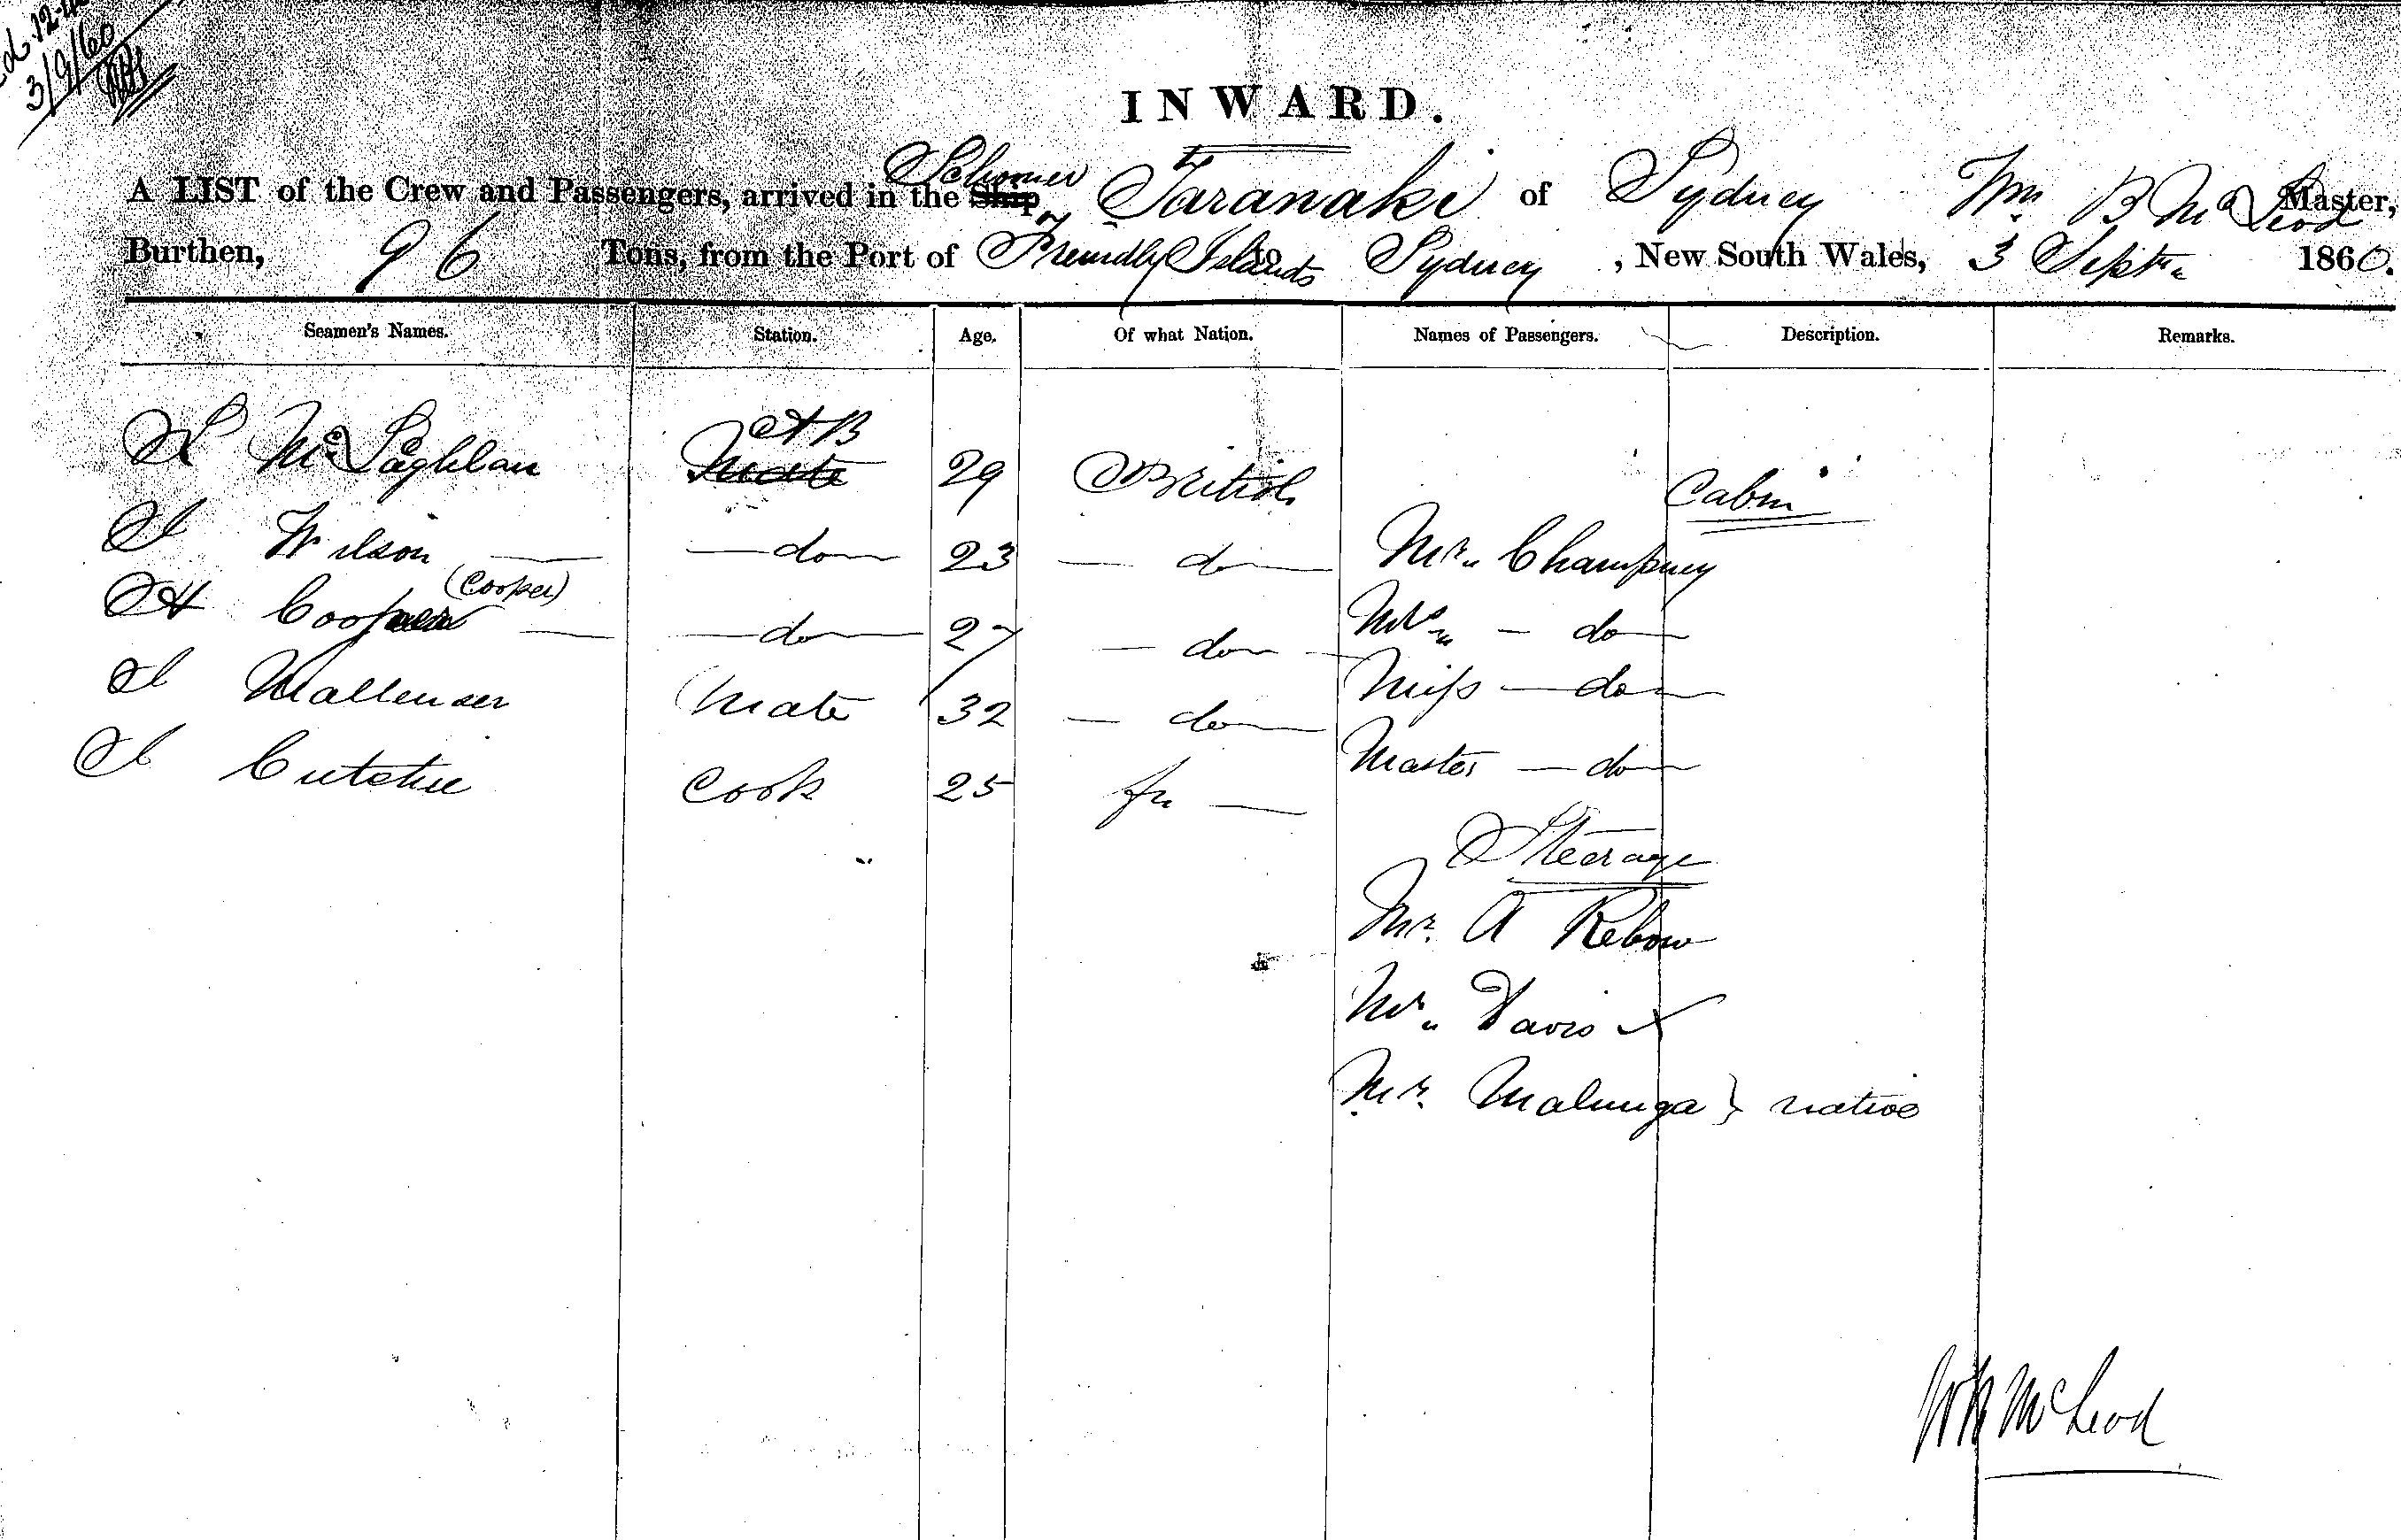 3/9/60
INWARD.
A LIST of the Crew and Passengers, arrived in the Ship Schooner Taranaki of Sydney Wm B McLeod Master,
Burthen, 96 Tons, from the Port of Friendly Islands to Sydney, New South Wales, 3 Septr 1860.
Seamen's Names. Station. Age. Of what Nation. Names of Passengers. Description. Remarks.
Mc Laghlan Mate AB 29 British
Cabin
Wilson — do 23 — do Mr. Champney
H Cooper (Cooper) — do 27 — do Mrs — do
Mate 32 — do Miss — do
Cook 25 Master — do
Steerage
Mr. A Rebow
Mr. Davis
Mr. Malunga } native
McLeod